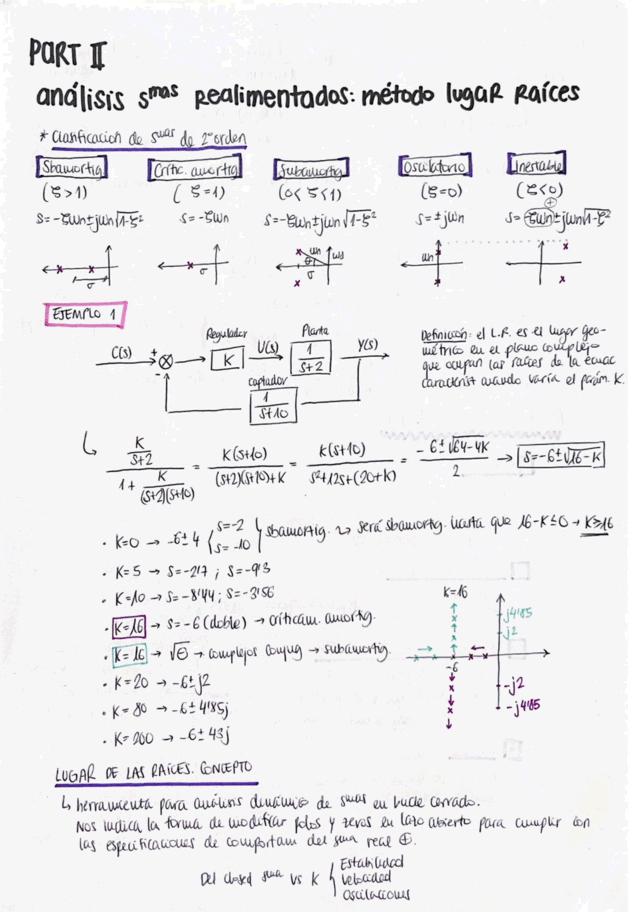 PART II
análisis Smas Realimentados: método lugar Raíces
* Clasificación de smas de 2º orden
Sbamortig Crític. amortig Subamortig Oscilatorio Inestable
(ξ>1) (ξ=1) (0<ξ<1) (ξ=0) (ξ<0)
S=-ξωn±jωn√1-ξ² S=-ξωn S=-ξωn±jωn√1-ξ² S=±jωn S=-ξωn±jωn√1-ξ²
⊕
σ σ ωn θ σ ωd ωn
EJEMPLO 1
Regulador Planta
C(s) + - K U(s) 1/(s+2) Y(s)
captador
1/(s+10)
Definición: el L.R. es el lugar geo-
métrico en el plano complejo
que ocupan las raíces de la ecuac
caracríst cuando varía el parám. K.
↳ (K/(s+2))/(1+K/((s+2)(s+10))) = K(s+10)/((s+2)(s+10)+K) = K(s+10)/(s²+12s+(20+K)) = (-6±√64-4K)/2 → S=-6±√16-K
· K=0 → -6±4 { s=-2 s=-10 } sbamortig. ↝ será sbamortig. hasta que 16-K≤0 → K≥16
· K=5 → s=-2'7 ; s=-9'3
· K=10 → s=-8'44 ; s=-3'56
· K=16 → s=-6 (doble) → críticam. amortig.
· K=16 → √⊖ → complejos conjug → subamortig.
· K=20 → -6±j2
· K=80 → -6±4'85j
· K=200 → -6±43j
K=16
j4'85
j2
-6
-j2
-j4'85
LUGAR DE LAS RAÍCES. CONCEPTO
↳ herramienta para análisis dinámico de smas en bucle cerrado.
Nos indica la forma de modificar polos y zeros en lazo abierto para cumplir con
las especificaciones de comportam del sma real ⊕.
Del closed sma vs K { Estabilidad
Velocidad
Oscilaciones